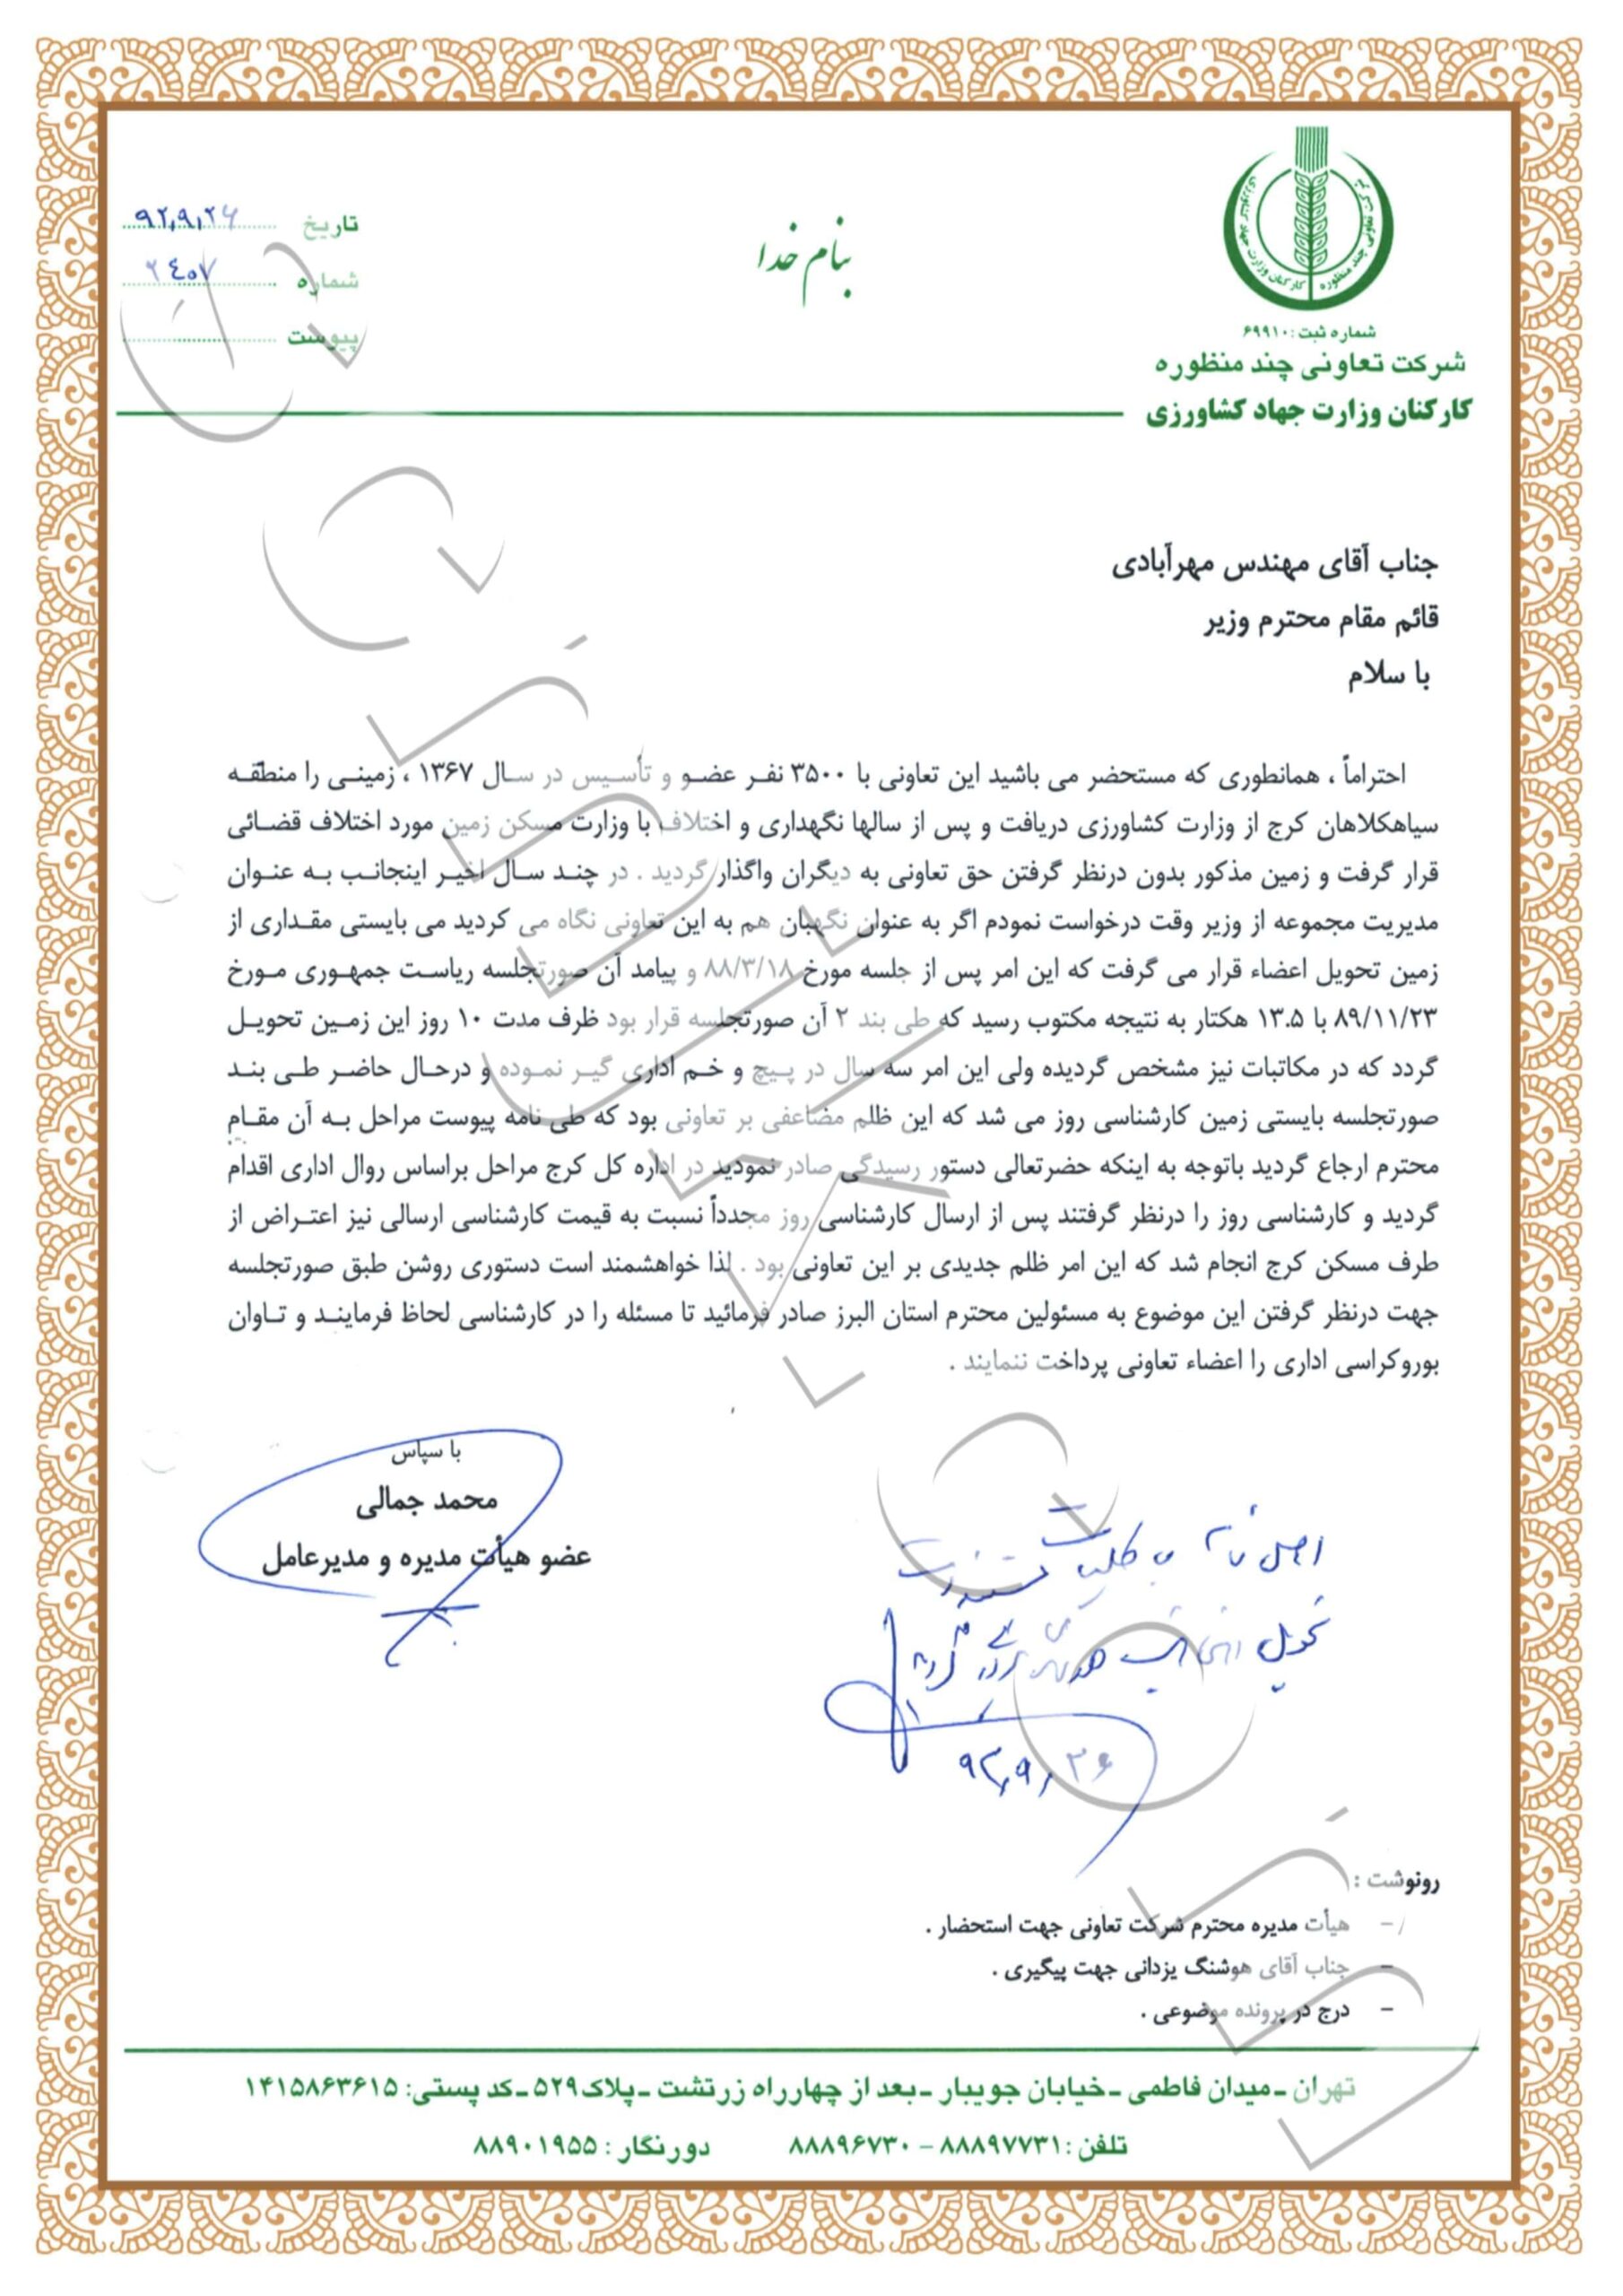 بنام خدا
تاریخ ۹۲,۹,۲۶
شماره ۲۴۰۷
پیوست
شرکت تعاونی چند منظوره
کارکنان وزارت جهاد کشاورزی
شماره ثبت : ۶۹۹۱۰
شرکت تعاونی چند منظوره
کارکنان وزارت جهاد کشاورزی
جناب آقای مهندس مهرآبادی
قائم مقام محترم وزیر
با سلام
احتراماً ، همانطوری که مستحضر می باشید این تعاونی با ۳۵۰۰ نفر عضو و تأسیس در سال ۱۳۶۷ ، زمینی را منطقه
سیاهکلاهان کرج از وزارت کشاورزی دریافت و پس از سالها نگهداری و اختلاف با وزارت مسکن زمین مورد اختلاف قضائی
قرار گرفت و زمین مذکور بدون درنظر گرفتن حق تعاونی به دیگران واگذار گردید . در چند سال اخیر اینجانب به عنوان
مدیریت مجموعه از وزیر وقت درخواست نمودم اگر به عنوان نگهبان هم به این تعاونی نگاه می کردید می بایستی مقداری از
زمین تحویل اعضاء قرار می گرفت که این امر پس از جلسه مورخ ۸۸/۳/۱۸ و پیامد آن صورتجلسه ریاست جمهوری مورخ
۸۹/۱۱/۲۳ با ۱۳.۵ هکتار به نتیجه مکتوب رسید که طی بند ۲ آن صورتجلسه قرار بود ظرف مدت ۱۰ روز این زمین تحویل
گردد که در مکاتبات نیز مشخص گردیده ولی این امر سه سال در پیچ و خم اداری گیر نموده و درحال حاضر طی بند
صورتجلسه بایستی زمین کارشناسی روز می شد که این ظلم مضاعفی بر تعاونی بود که طی نامه پیوست مراحل به آن مقام
محترم ارجاع گردید باتوجه به اینکه حضرتعالی دستور رسیدگی صادر نمودید در اداره کل کرج مراحل براساس روال اداری اقدام
گردید و کارشناسی روز را درنظر گرفتند پس از ارسال کارشناسی روز مجدداً نسبت به قیمت کارشناسی ارسالی نیز اعتراض از
طرف مسکن کرج انجام شد که این امر ظلم جدیدی بر این تعاونی بود . لذا خواهشمند است دستوری روشن طبق صورتجلسه
جهت درنظر گرفتن این موضوع به مسئولین محترم استان البرز صادر فرمائید تا مسئله را در کارشناسی لحاظ فرمایند و تاوان
بوروکراسی اداری را اعضاء تعاونی پرداخت ننمایند .
با سپاس
محمد جمالی
عضو هیأت مدیره و مدیرعامل
اصل نامه و کلیه مستندات
تحویل اینجانب هوشنگ یزدانی گردید
۹۲,۹,۲۶
رونوشت :
- هیأت مدیره محترم شرکت تعاونی جهت استحضار .
- جناب آقای هوشنگ یزدانی جهت پیگیری .
- درج در پرونده موضوعی .
تهران - میدان فاطمی - خیابان جویبار - بعد از چهارراه زرتشت - پلاک ۵۲۹ - کد پستی: ۱۴۱۵۸۶۳۶۱۵
تلفن : ۸۸۸۹۷۷۳۱ - ۸۸۸۹۶۷۳۰ دورنگار : ۸۸۹۰۱۹۵۵